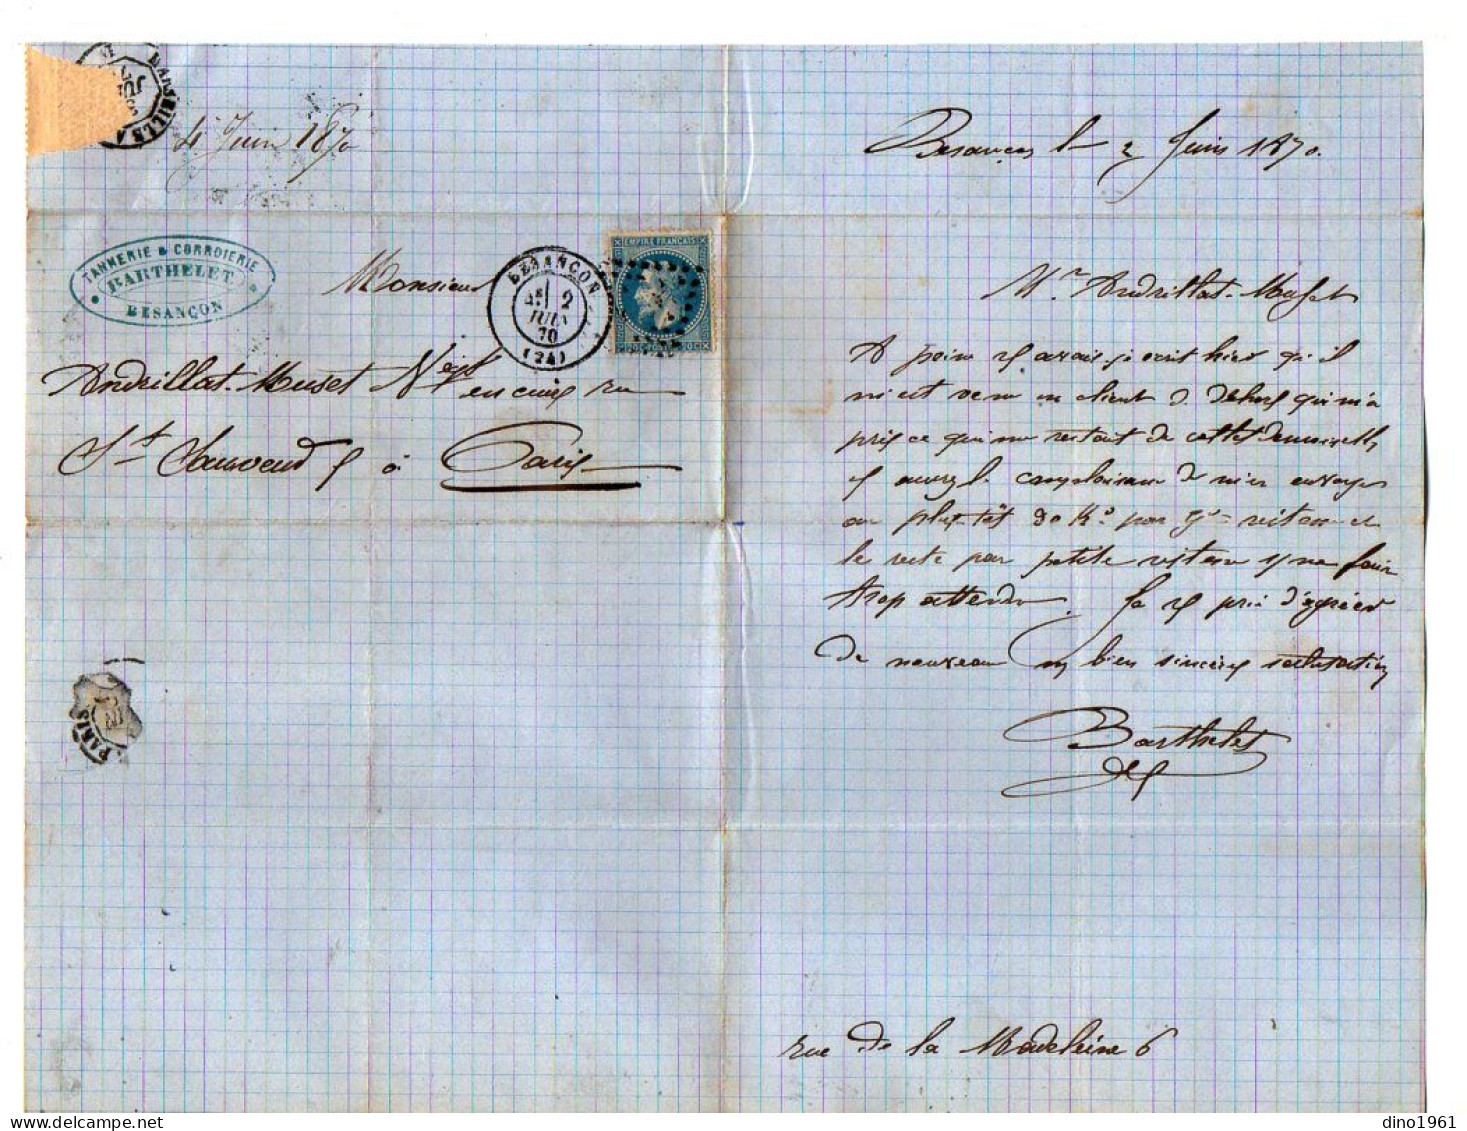 MARSEILLE A
JUIN
4 Juin 1870
TANNERIE & CORROIERIE
BARTHELET
BESANÇON
Monsieur
BESANÇON
2
JUIN
70
(24)
EMPIRE FRANÇAIS
20 C
Andrillat-Musset Négt en cuirs rue
St Sauveur 5 à Paris
PARIS
Besançon le 2 Juin 1870.
Mr Andrillat-Musset
A peine avais-je écrit hier qu'il
m'est venu un client de dehors qui m'a
pris ce qui me restait de cette
ayez la complaisance de m'en envoyer
au plus-tôt 30 Ko par gde vitesse et
le reste par petite vitesse ne faire
trop attendre. Je prie d'agréer
de nouveau mes bien sincères salutations
Barthelet
rue de la Madeleine 6
dino1961